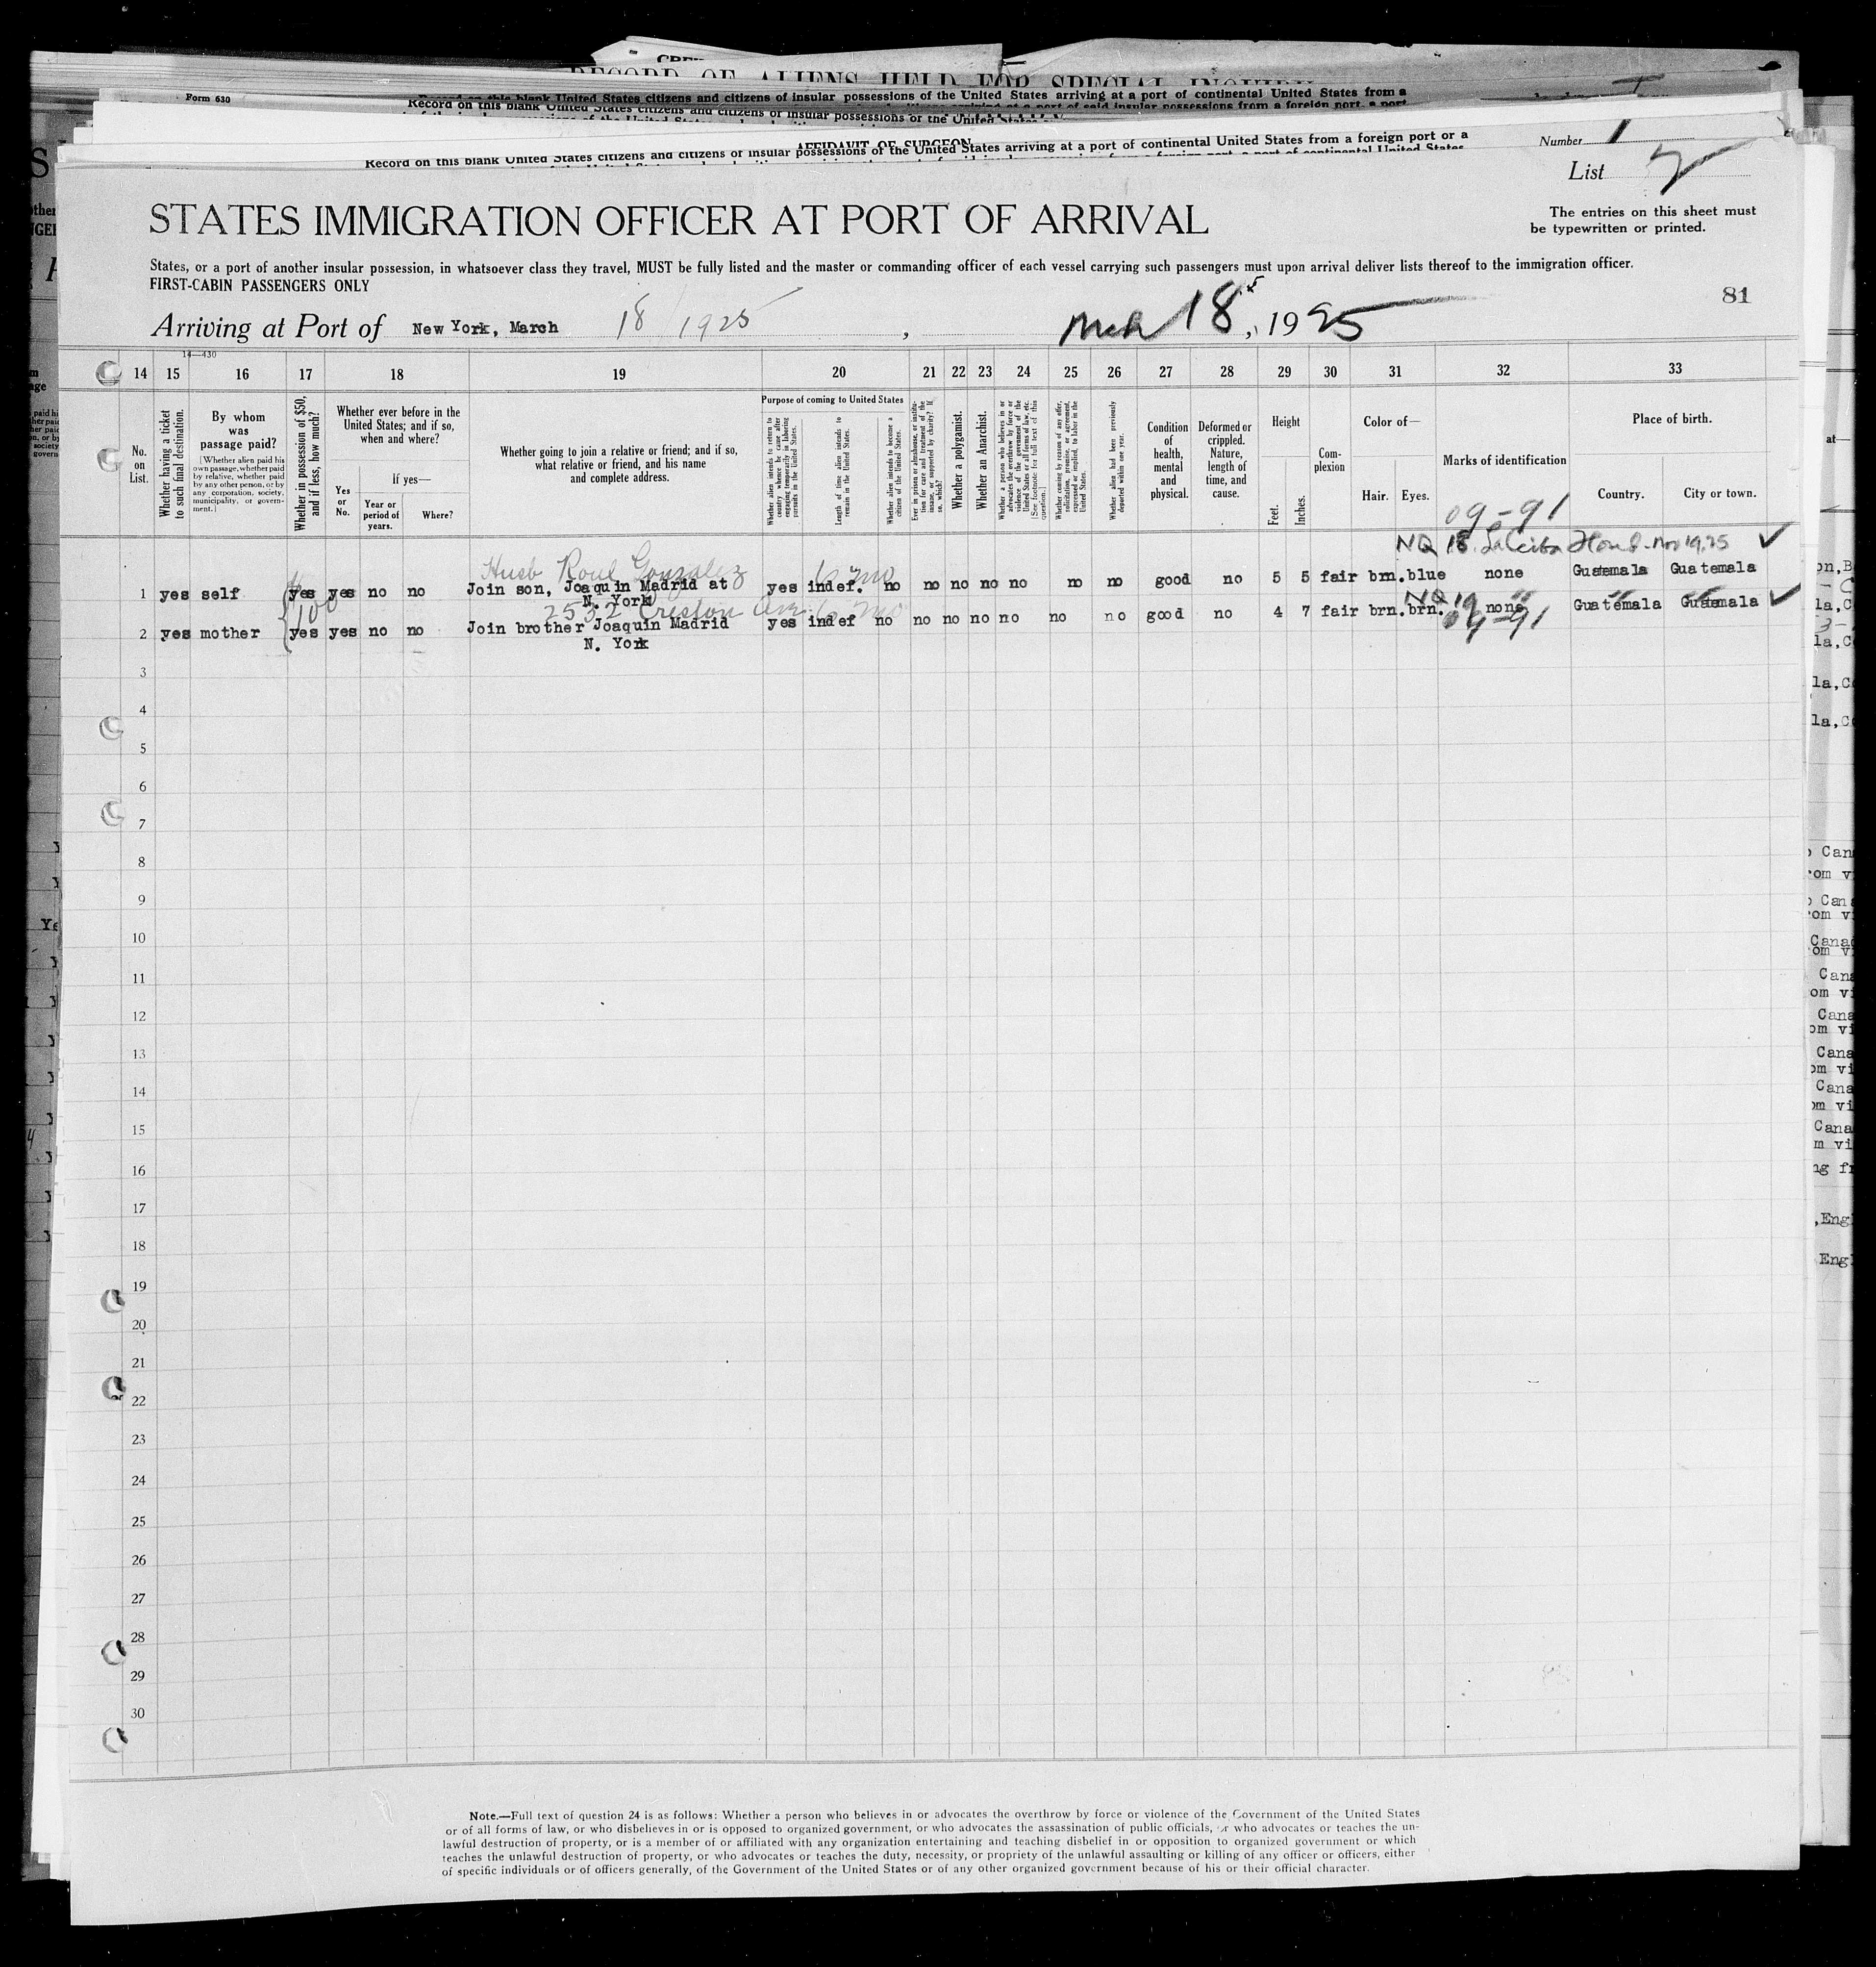 RECORD OF ALIENS HELD FOR SPECIAL INQUIRY
Form 630
Record on this blank United States citizens and citizens of insular possessions of the United States arriving at a port of continental United States from a
AFFIDAVIT OF SURGEON
Record on this blank United States citizens and citizens of insular possessions of the United States arriving at a port of continental United States from a foreign port or a
Number 1
List 2
STATES IMMIGRATION OFFICER AT PORT OF ARRIVAL
The entries on this sheet must
be typewritten or printed.
States, or a port of another insular possession, in whatsoever class they travel, MUST be fully listed and the master or commanding officer of each vessel carrying such passengers must upon arrival deliver lists thereof to the immigration officer.
FIRST-CABIN PASSENGERS ONLY
81
Arriving at Port of New York, March 18 1925, Mch 18, 1925
14—430
14 15 16 17 18 19 20 21 22 23 24 25 26 27 28 29 30 31 32 33
No. on List.
Whether having a ticket to such final destination.
By whom was passage paid?
[Whether alien paid his own passage, whether paid by relative, whether paid by any other person, or by any corporation, society, municipality, or government.]
Whether in possession of $50, and if less, how much?
Whether ever before in the United States; and if so, when and where?
Yes or No.
If yes—
Year or period of years.
Where?
Whether going to join a relative or friend; and if so, what relative or friend, and his name and complete address.
Purpose of coming to United States
Whether alien intends to return to country whence he came after engaging temporarily in laboring pursuits in the United States.
Length of time alien intends to remain in the United States.
Whether alien intends to become a citizen of the United States.
Ever in prison or almshouse, or institution for care and treatment of the insane, or supported by charity? If so, which?
Whether a polygamist.
Whether an Anarchist.
Whether a person who believes in or advocates the overthrow by force or violence of the government of the United States or all forms of law, etc. [See footnote for full text of this question.]
Whether coming by reason of any offer, solicitation, promise, or agreement, expressed or implied, to labor in the United States.
Whether alien had been previously deported within one year.
Condition of health, mental and physical.
Deformed or crippled. Nature, length of time, and cause.
Height
Feet.
Inches.
Complexion
Color of—
Hair.
Eyes.
Marks of identification
Place of birth.
Country.
City or town.
09-91
NQ 18 La Ceiba Hond. Nov 19, 25
Husb Roul Gonzalez 6 mo
1 yes self yes yes no no Join son, Joaquin Madrid at yes indef. no no no no no no no good no 5 5 fair brn. blue none Guatemala Guatemala
N. York
100
2532 Creston Ave 6 mo
NQ 19
2 yes mother yes yes no no Join brother Joaquin Madrid yes indef no no no no no no no good no 4 7 fair brn. brn. none Guatemala Guatemala
N. York
09-91
3
4
5
6
7
8
9
10
11
12
13
14
15
16
17
18
19
20
21
22
23
24
25
26
27
28
29
30
Note.—Full text of question 24 is as follows: Whether a person who believes in or advocates the overthrow by force or violence of the Government of the United States
or of all forms of law, or who disbelieves in or is opposed to organized government, or who advocates the assassination of public officials, or who advocates or teaches the un-
lawful destruction of property, or is a member of or affiliated with any organization entertaining and teaching disbelief in or opposition to organized government or which
teaches the unlawful destruction of property, or who advocates or teaches the duty, necessity, or propriety of the unlawful assaulting or killing of any officer or officers, either
of specific individuals or of officers generally, of the Government of the United States or of any other organized government because of his or their official character.